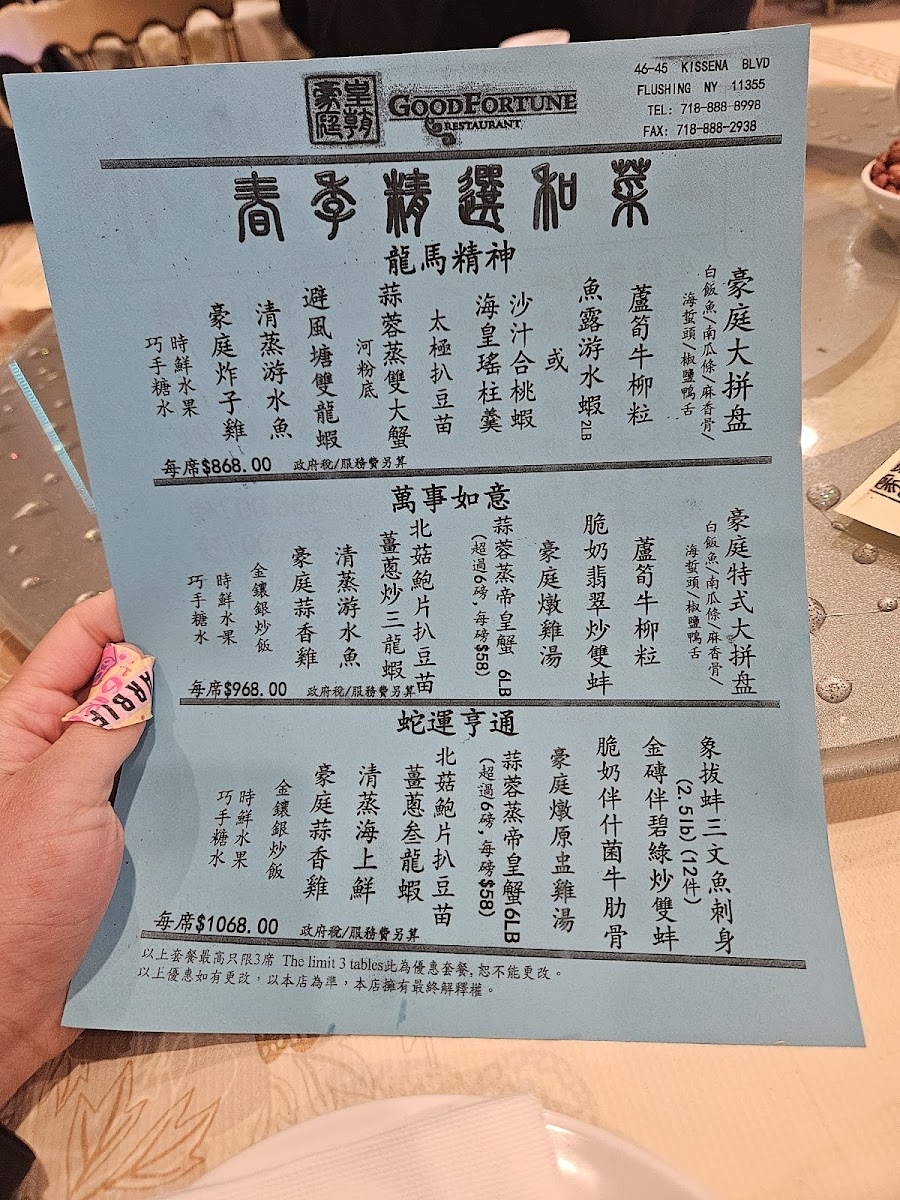 皇朝
豪庭
GOODFORTUNE
RESTAURANT
46-45 KISSENA BLVD
FLUSHING NY 11355
TEL: 718-888-8998
FAX: 718-888-2938
春季精選和菜
龍馬精神
豪庭大拼盘
白飯魚/南瓜條/麻香骨/
海蜇頭/椒鹽鴨舌
蘆筍牛柳粒
魚露游水蝦 2LB
或
沙汁合桃蝦
海皇瑤柱羹
太極扒豆苗
蒜蓉蒸雙大蟹
河粉底
避風塘雙龍蝦
清蒸游水魚
豪庭炸子雞
時鮮水果
巧手糖水
每席$868.00 政府稅/服務費另算
萬事如意
豪庭特式大拼盘
白飯魚/南瓜條/麻香骨/
海蜇頭/椒鹽鴨舌
蘆筍牛柳粒
脆奶翡翠炒雙蚌
豪庭燉雞湯
蒜蓉蒸帝皇蟹 6LB
(超過6磅,每磅$58)
北菇鮑片扒豆苗
薑蔥炒三龍蝦
清蒸游水魚
豪庭蒜香雞
金鑲銀炒飯
時鮮水果
巧手糖水
每席$968.00 政府稅/服務費另算
蛇運亨通
象拔蚌三文魚刺身
(2.5lb)(12件)
金磚伴碧綠炒雙蚌
脆奶伴什菌牛肋骨
豪庭燉原盅雞湯
蒜蓉蒸帝皇蟹6LB
(超過6磅,每磅$58)
北菇鮑片扒豆苗
薑蔥叁龍蝦
清蒸海上鮮
豪庭蒜香雞
金鑲銀炒飯
時鮮水果
巧手糖水
每席$1068.00 政府稅/服務費另算
以上套餐最高只限3席 The limit 3 tables此為優惠套餐,恕不能更改。
以上優惠如有更改,以本店為準,本店擁有最終解釋權。